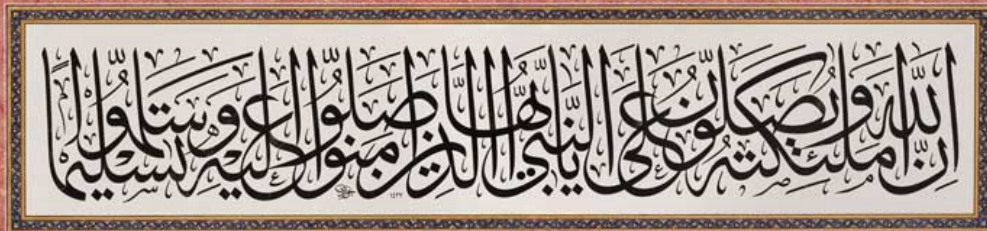 إِنَّ اللَّهَ وَمَلَئِكَتَهُ يُصَلُّونَ عَلَى النَّبِيِّ يَا أَيُّهَا الَّذِينَ آمَنُوا صَلُّوا عَلَيْهِ وَسَلِّمُوا تَسْلِيمًا
١٤٢٧